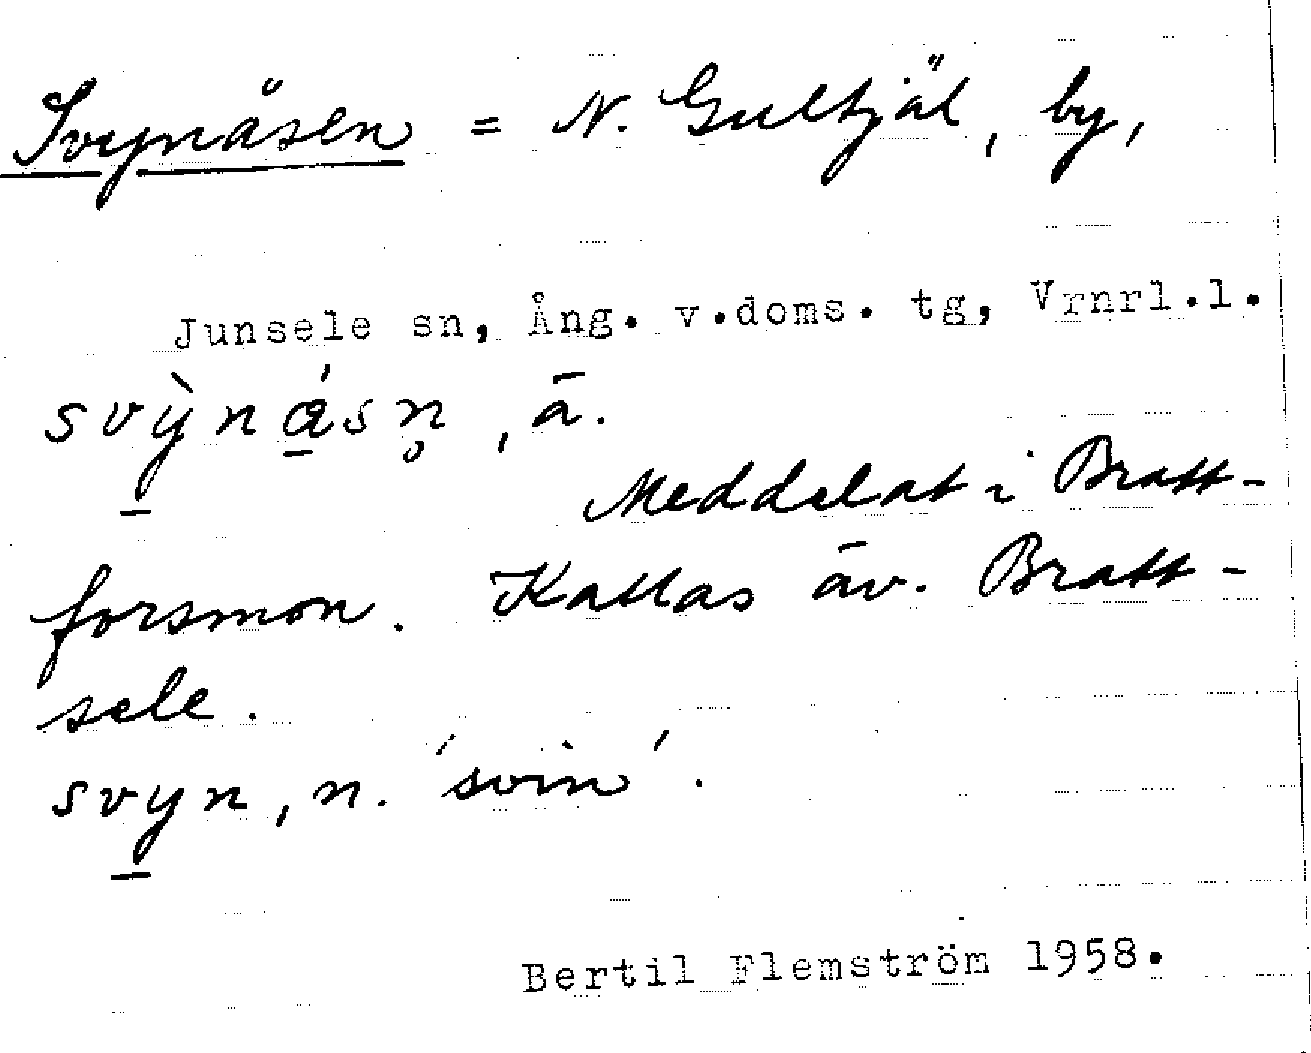 Svynåsen = N. Gultjäl, by,
Junsele sn, Ång. v.doms. tg, Vrnrl.l.
svỳ̠nǻ̠sn̥, ā.
Meddelat i Bratt-
forsmon. Kallas äv. Bratt-
sele.
svy̠n, n. 'svin'.
Bertil Flemström 1958.